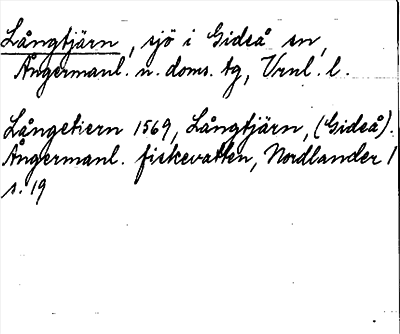 Långtjärn, sjö i Gideå sn,
Ångermanl. n. doms. tg, Vrnl. l.
Långetiern 1569, Långtjärn, (Gideå).
Ångermanl. fiskevatten, Nordlander 1
s. 19